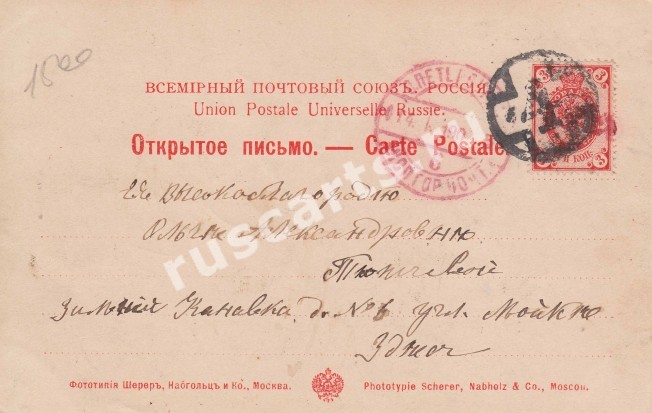 1800
ВСЕМІРНЫЙ ПОЧТОВЫЙ СОЮЗЪ. РОССІЯ
Union Postale Universelle Russie.
Открытое письмо. — Carte Postale
3 3
3 3
Ея Высокоблагородію
Ольгѣ Александровнѣ
Тютчевой
Зимняя Канавка д. № 6 уг. Мойки
Здѣсь
Фототипія Шереръ, Набгольцъ и Ко., Москва.
Phototypie Scherer, Nabholz & Co., Moscou.
ruscarts.ru